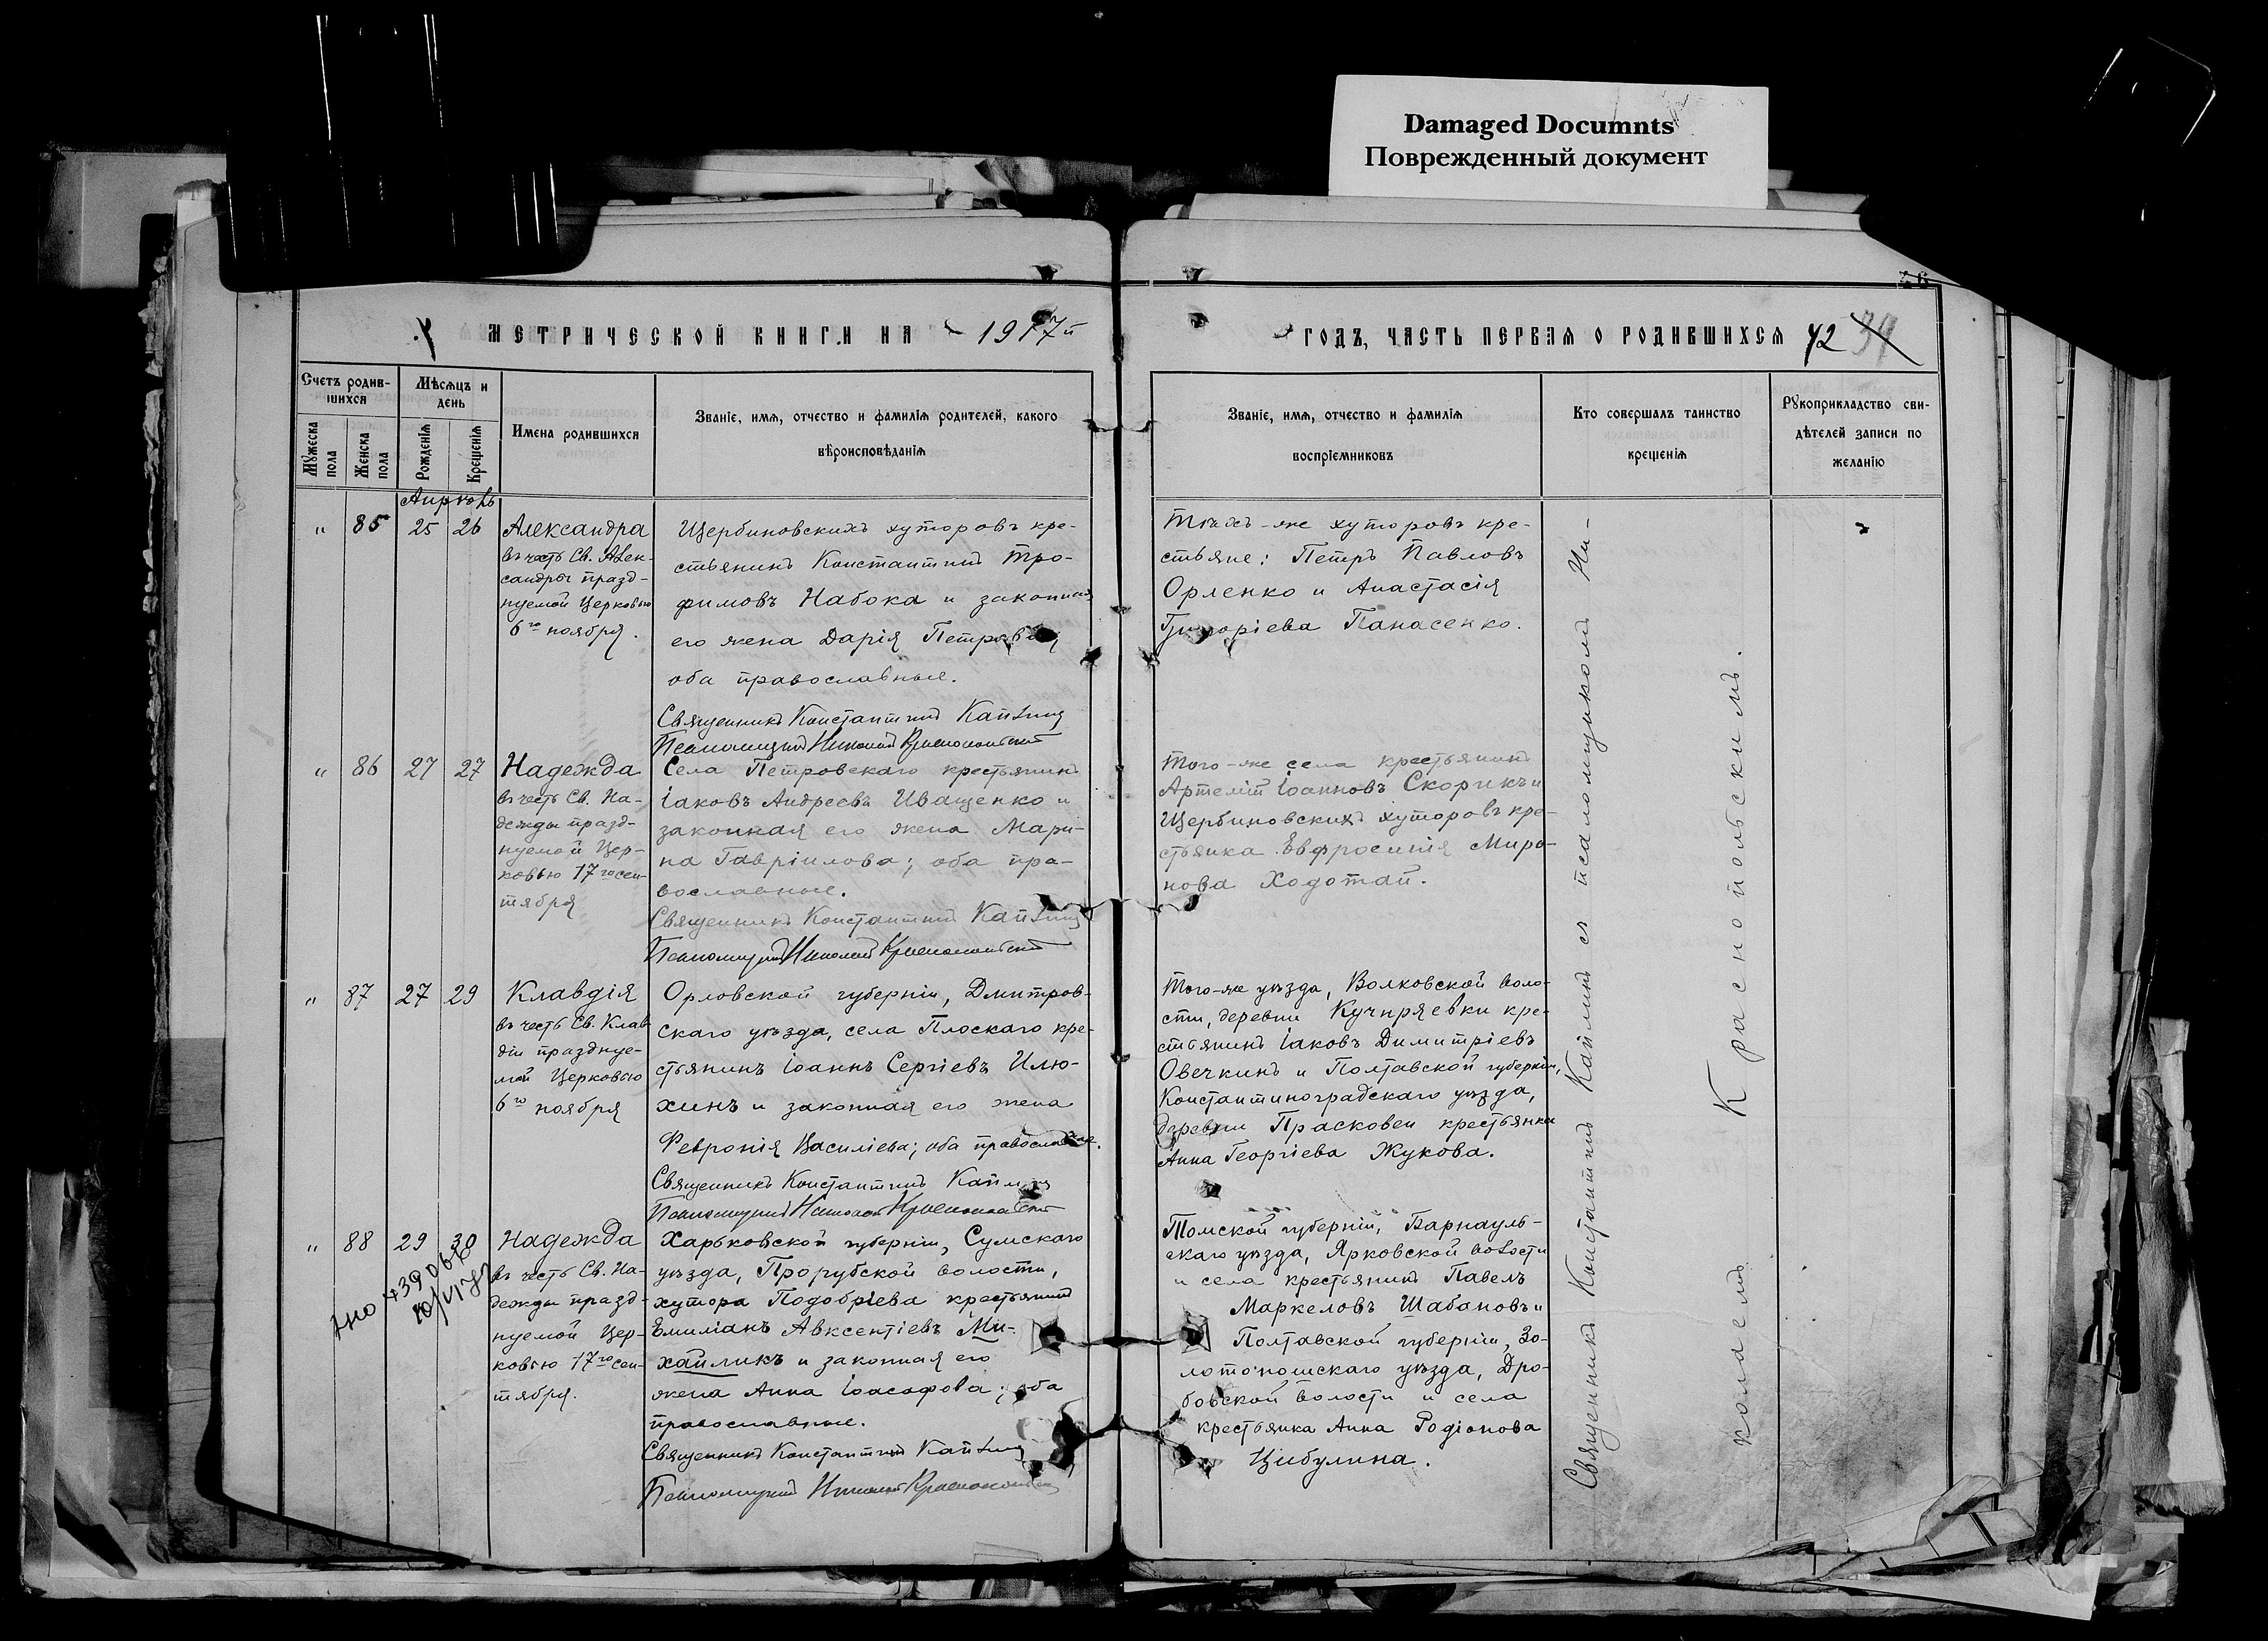 Damaged Documnts
Поврежденный документ
МЕТРИЧЕСКОЙ КНИГИ НА 1917й
ГОДЪ, ЧАСТЬ ПЕРВАЯ О РОДИВШИХСЯ 42 39
Счетъ родив-
шихся
Мужеска пола
Женска пола
Мѣсяцъ и
день
Рожденія
Крещенія
Имена родившихся
Званіе, имя, отчество и фамилія родителей, какого
вѣроисповѣданія
Званіе, имя, отчество и фамилія
воспріемниковъ
Кто совершалъ таинство
крещенія
Рукоприкладство сви-
дѣтелей записи по
желанію
Апрѣль
" 85 25 26
Александра
въ честь Св. Алек-
сандры празд-
нуемой Церковью
6го ноября.
Щербиновскихъ хуторовъ кре-
стьянинъ Константинъ Тро-
фимовъ Набока и законная
его жена Дарія Петрова,
оба православные.
Священникъ Константинъ Каплинъ
Псаломщикъ Николай Краснопольскій
Тѣхъ-же хуторовъ кре-
стьяне: Петръ Павловъ
Орленко и Анастасія
Григоріева Панасенко.
" 86 27 27
Надежда
въ честь Св. На-
дежды празд-
нуемой Цер-
ковью 17го сен-
тября
Села Петровскаго крестьянинъ
Іаковъ Андреевъ Иващенко и
законная его жена Мари-
на Гавріилова; оба пра-
вославные.
Священникъ Константинъ Каплинъ
Псаломщикъ Николай Краснопольскій
Того-же села крестьянинъ
Іоанновъ Скорикъ и
Щербиновскихъ хуторовъ кре-
стьянка Евфросинія Миро-
нова Ходотай.
" 87 27 29
Клавдія
въ честь Св. Клав-
діи празднуе-
мой Церковью
6го ноября
Орловской губерніи, Дмитров-
скаго уѣзда, села Плоскаго кре-
стьянинъ Іоаннъ Сергіевъ Илю-
хинъ и законная его жена
Февронія Василіева; оба православные.
Священникъ Константинъ Каплинъ
Псаломщикъ Николай Краснопольскій
Того-же уѣзда, Волковской воло-
сти, деревни Кучеряевки кре-
стьянинъ Іаковъ Димитріевъ
Овечкинъ и Полтавской губерніи,
Константиноградскаго уѣзда,
деревни Прасковеи крестьянка
Анна Георгіева Жукова.
" 88 29 30
Надежда
въ честь Св. На-
дежды празд-
нуемой Цер-
ковью 17го сен-
тября.
Харьковской губерніи, Сумскаго
уѣзда, Прорубской волости,
хутора Подобріева крестьянинъ
Емиліанъ Авксентіевъ Ми-
хайликъ и законная его
жена Анна Іоасафова; оба
православные.
Священникъ Константинъ Каплинъ
Псаломщикъ Николай Краснопольскій
Томской губерніи, Барнауль-
скаго уѣзда, Ярковской волости
и села крестьянинъ Павелъ
Маркеловъ Шабановъ и
Полтавской губерніи, Зо-
лотоношскаго уѣзда, Дро-
бовской волости и села
крестьянка Анна Родіонова
Цибулина.
Священникъ Константинъ Каплинъ съ псаломщикомъ Ни-
колаемъ Краснопольскимъ.